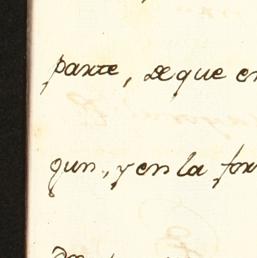 parte, de que en
gun, y en la for